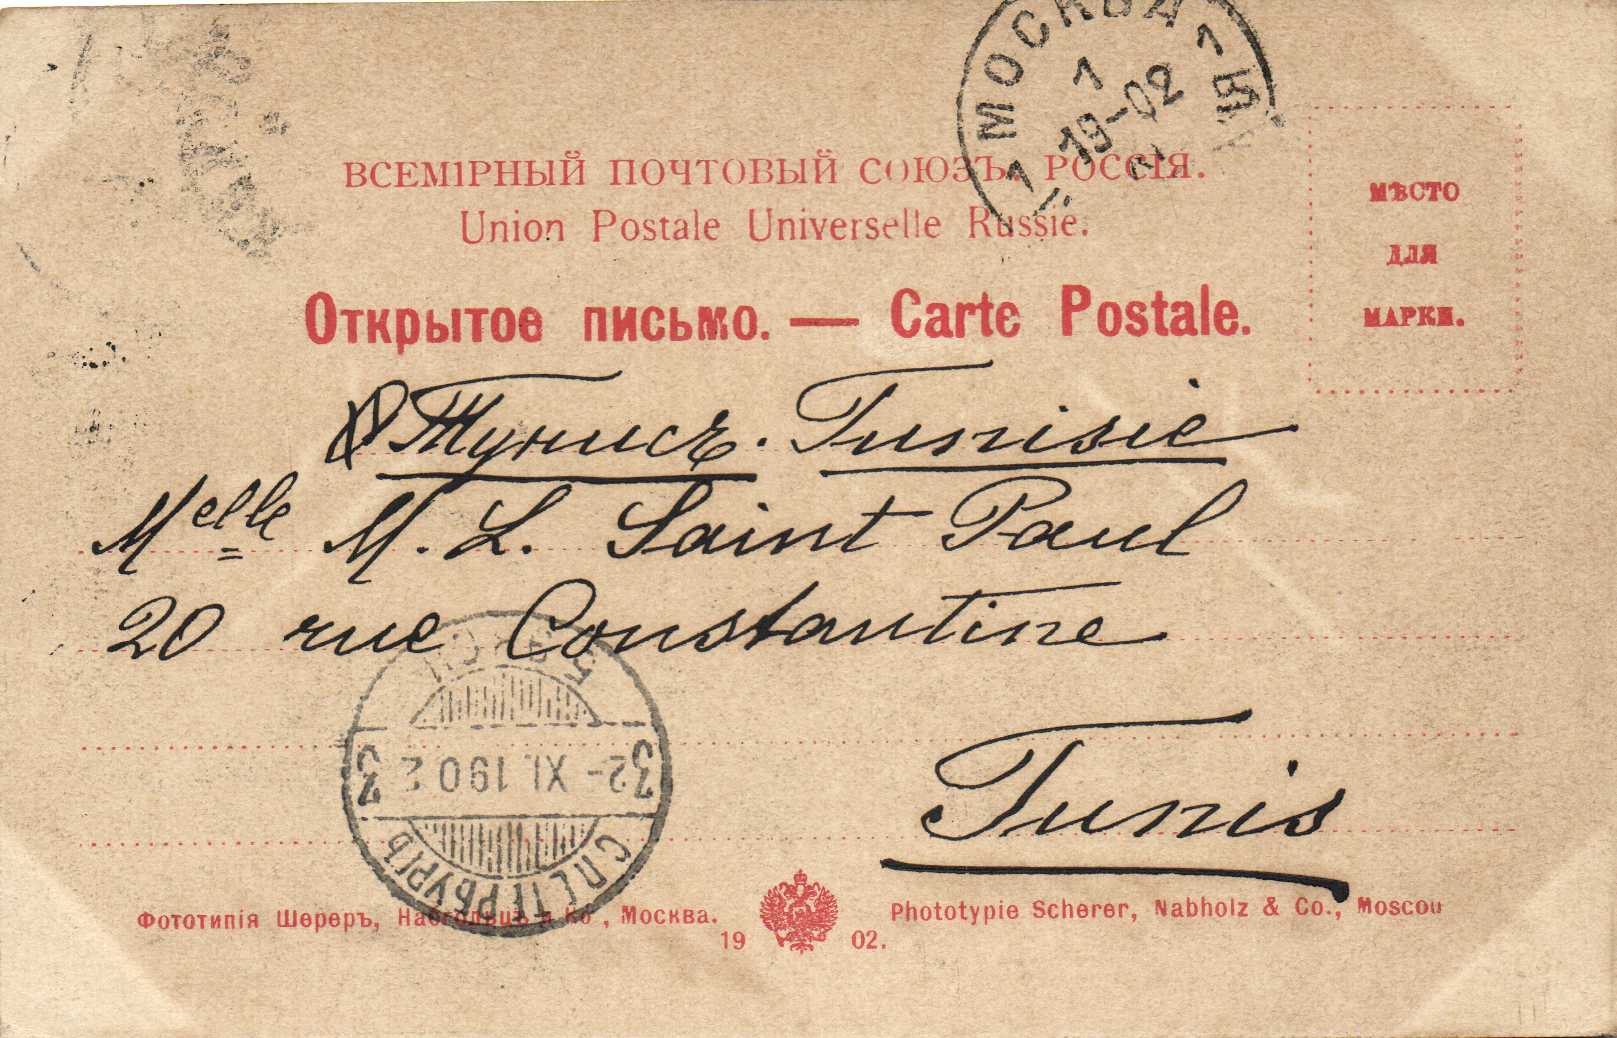 МОСКВА
1
19-02
ВСЕМІРНЫЙ ПОЧТОВЫЙ СОЮЗЪ. РОССІЯ.
Union Postale Universelle Russie.
МѢСТО
ДЛЯ
МАРКИ.
Открытое письмо. — Carte Postale.
Тунисъ. Tunisie
Melle M. L. Saint Paul
20 rue Constantine
Tunis
С.ПЕТЕРБУРГЪ
3 2-XI.1902 3
Фототипія Шереръ, Набгольцъ и Ко, Москва.
Phototypie Scherer, Nabholz & Co., Moscou
19 02.